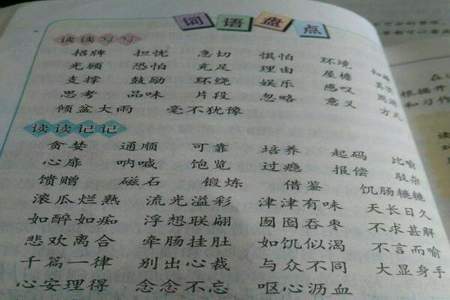 词语盘点
读读写写
招牌 担忧 急切 惧怕 环境
光顾 恐怕 充足 理由 屋檐
支撑 鼓励 环绕 娱乐 感叹
思考 品味 片段 忽略 意义
倾盆大雨 毫不犹豫
读读记记
贪婪 通顺 可靠 培养 起码 比喻
心扉 呐喊 饱览 过瘾 报偿
馈赠 磁石 锻炼 借鉴 饥肠辘辘
滚瓜烂熟 流光溢彩 津津有味 天长日久
如醉如痴 浮想联翩 囫囵吞枣 不求甚解
悲欢离合 牵肠挂肚 如饥似渴 不言而喻
千篇一律 别出心裁 与众不同 大显身手
心安理得 念念不忘 呕心沥血